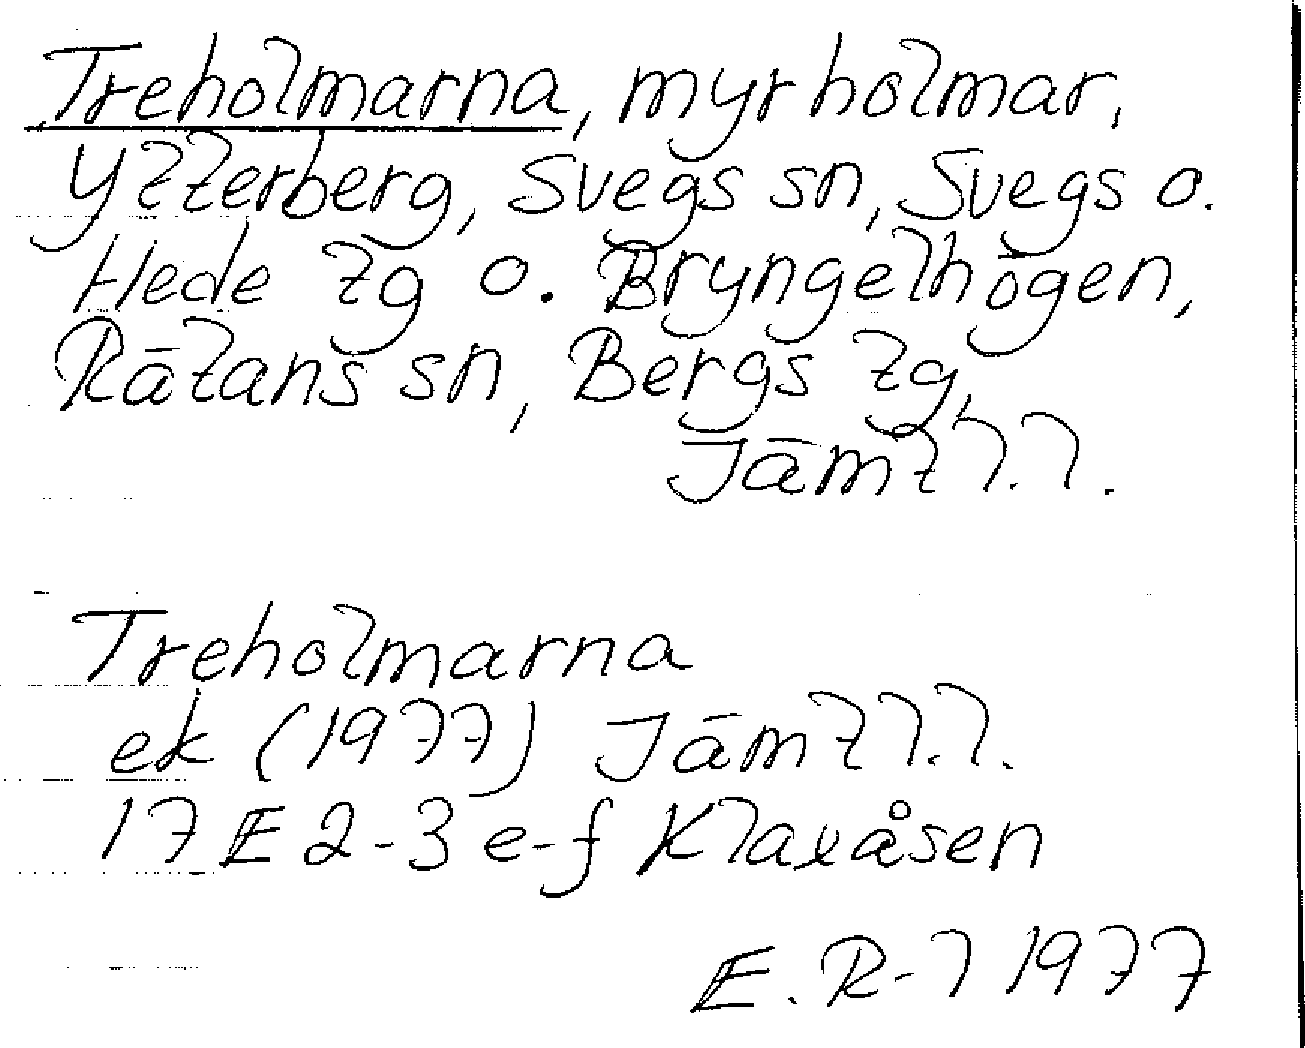 Treholmarna, myrholmar,
Ytterberg, Svegs sn, Svegs o.
Hede tg o. Bryngelhögen,
Rätans sn, Bergs tg,
Jämtl.l.
Treholmarna
ek (1977) Jämtl.l.
17 E 2-3 e-f Klaxåsen
E. R-l 1977